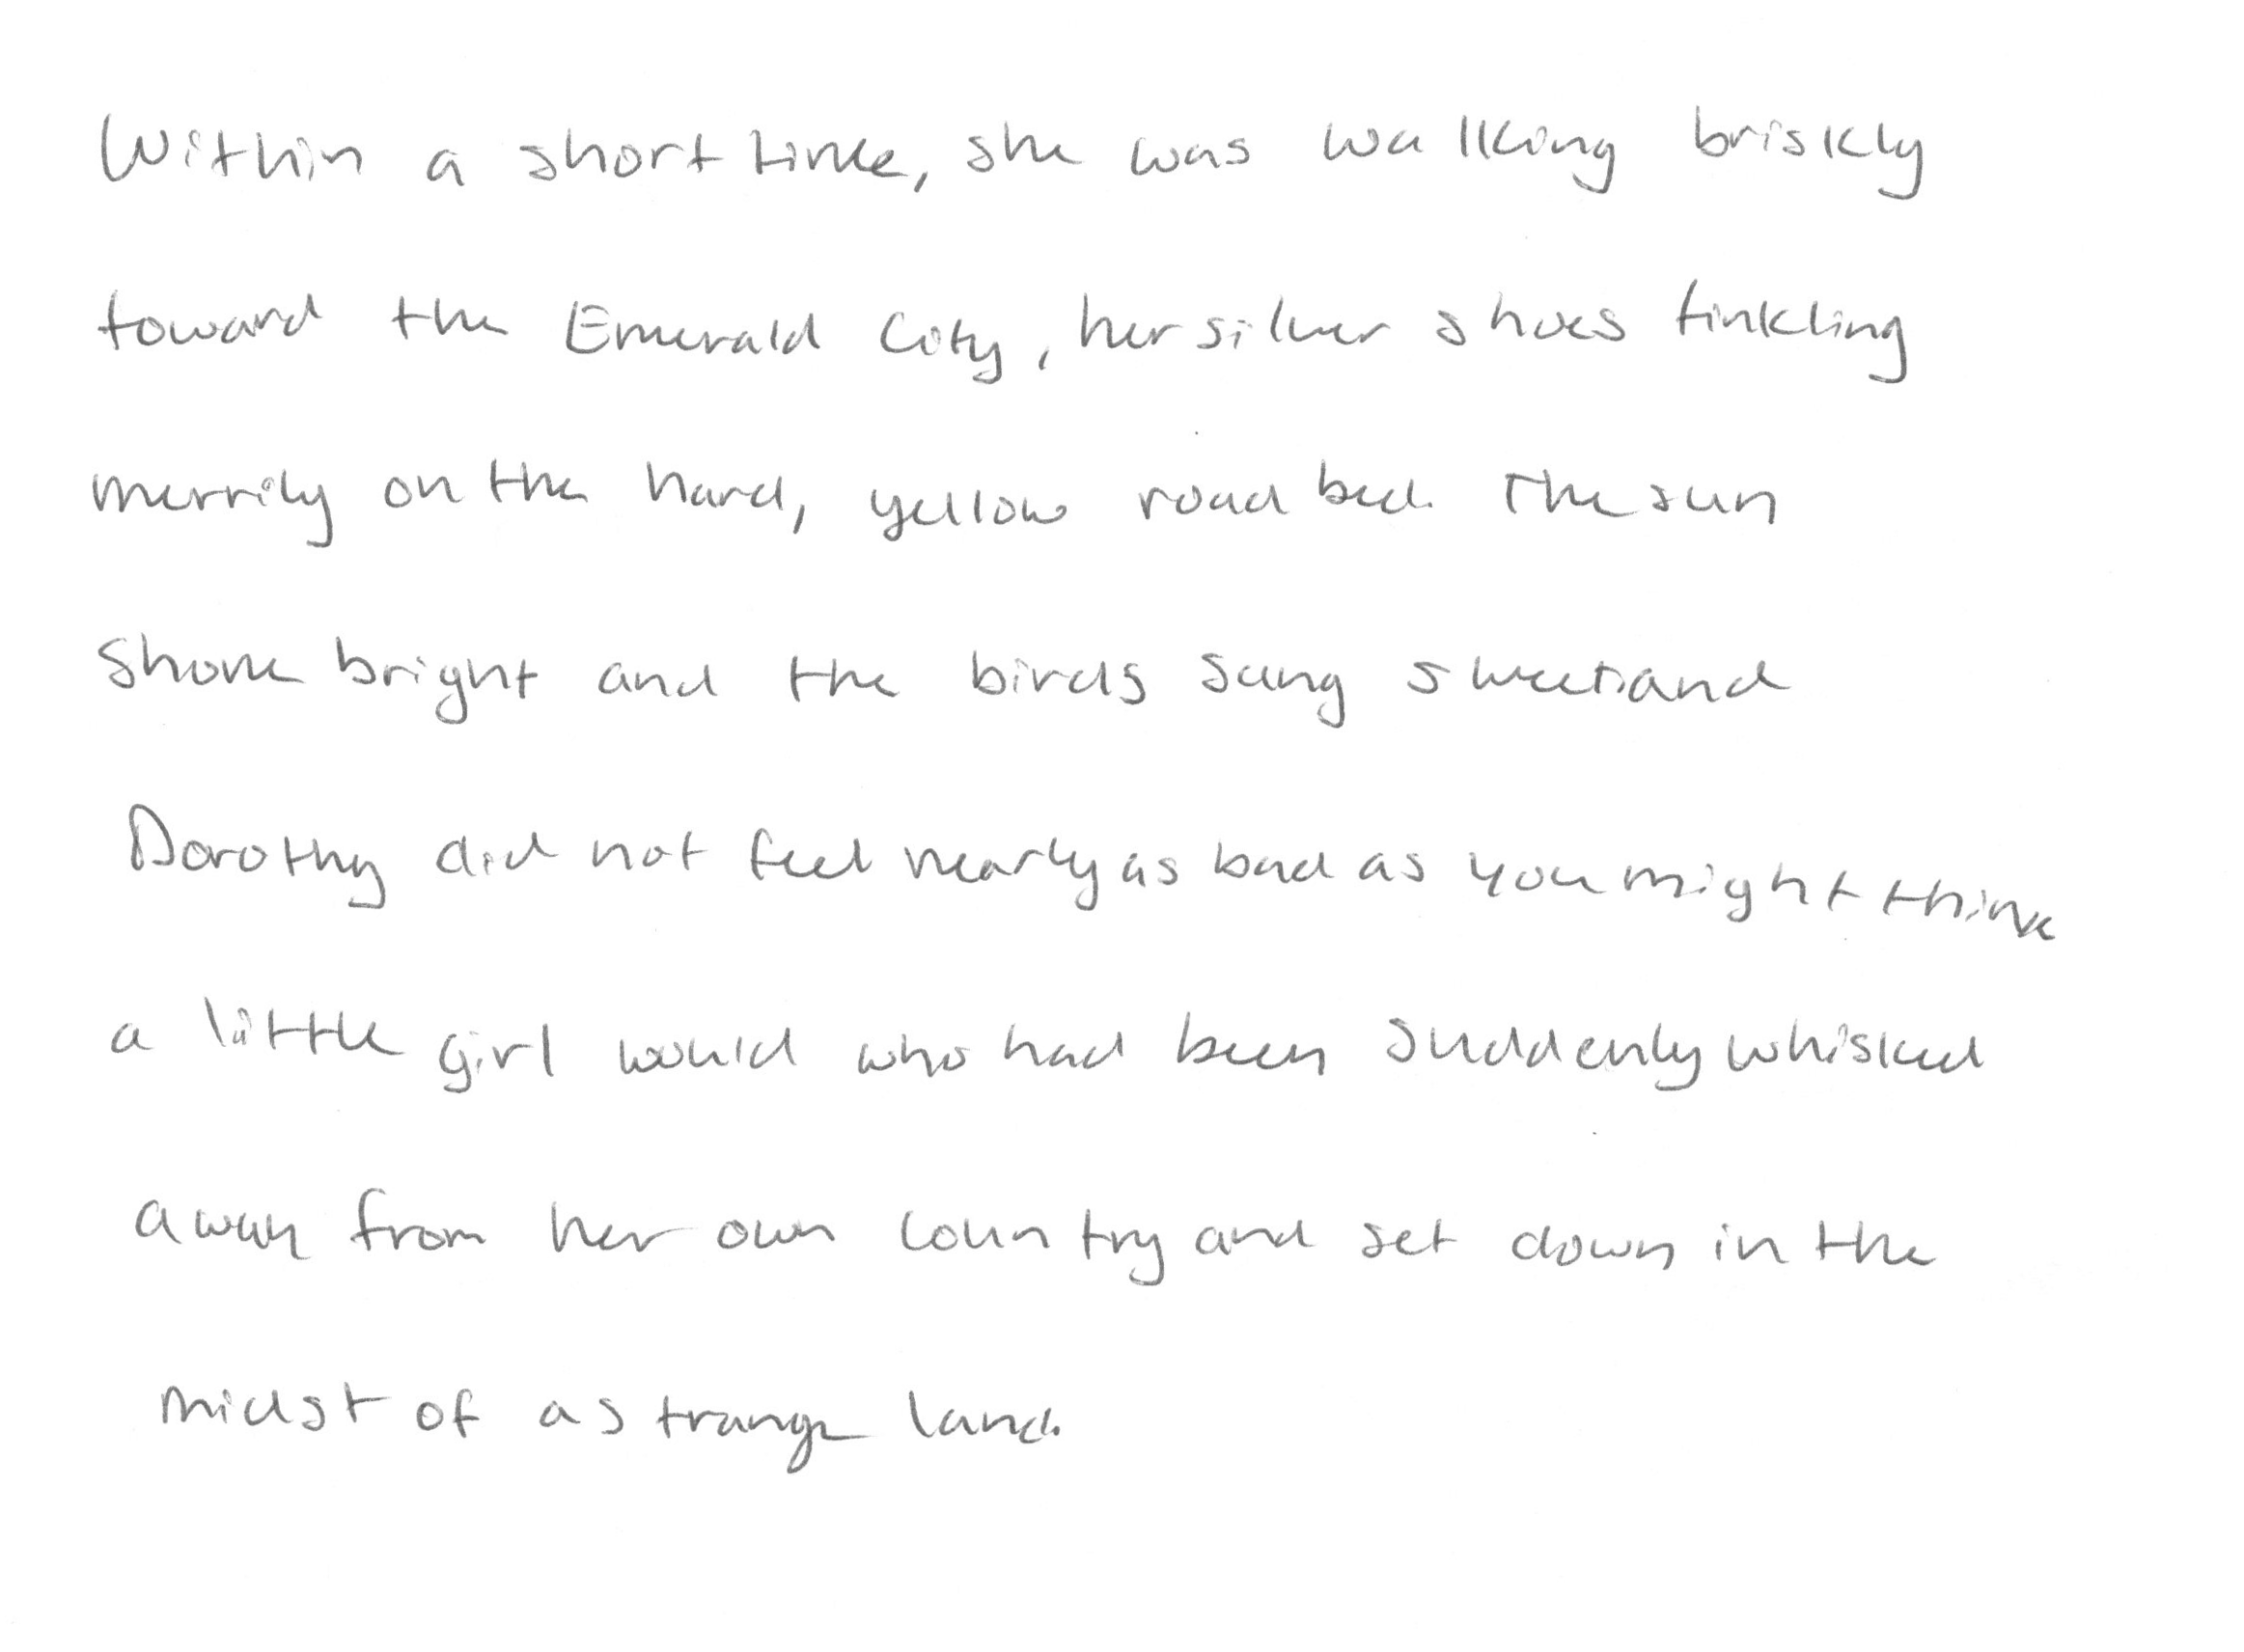 Within a short time, she was walking briskly
toward the Emerald City, her silver shoes tinkling
merrily on the hard, yellow road bed. The sun
shone bright and the birds sang sweet and
Dorothy did not feel nearly as bad as you might think
a little girl would who had been suddenly whisked
away from her own country and set down in the
midst of a strange land.